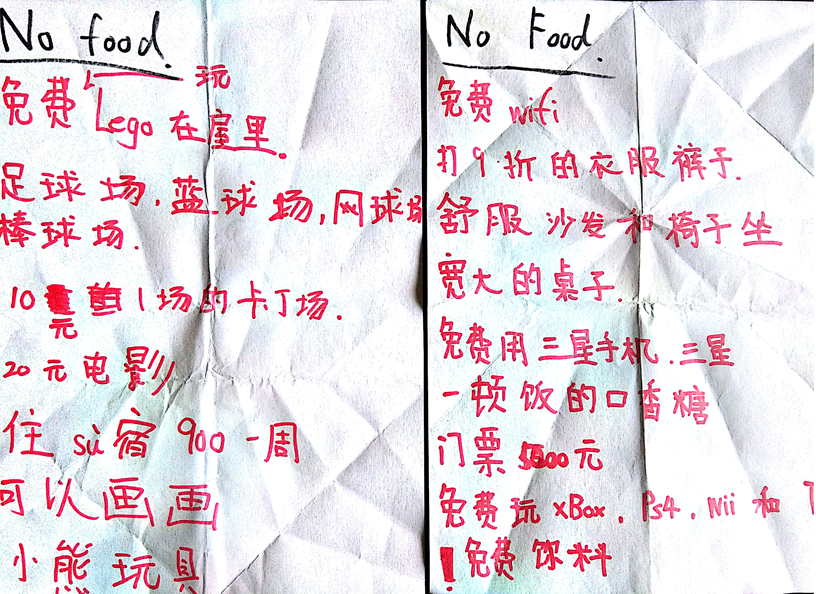 No food.
免费 Lego 在屋里.
玩
足球场.蓝球场,网球场
棒球场.
10 1场的卡丁场.
元
20元电影
住 sù 宿 900 一周
可以画画
小熊玩具
No Food.
免费 wifi
打9折的衣服裤子.
舒服沙发和椅子坐
宽大的桌子.
免费用三星手机.三星
一顿饭的口香糖
门票 元
免费玩 xBox, Ps4, Wii 和
!免费饮料